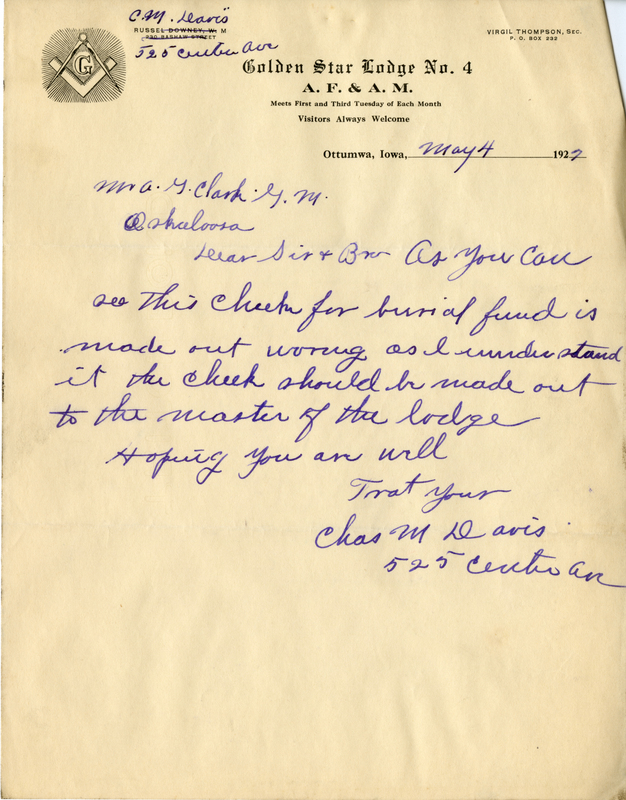 C. M. Davis
RUSSEL DOWNEY, W. M
230 BASHAW STREET
525 Center Ave
VIRGIL THOMPSON, SEC.
P. O. BOX 232
G
Golden Star Lodge No. 4
A. F. & A. M.
Meets First and Third Tuesday of Each Month
Visitors Always Welcome
Ottumwa, Iowa, May 4 1927
Mr A. G. Clark. G. M.
Oskaloosa
Dear Sir + Bro As You Can
see this Check for burial fund is
made out worng as I understand
it the check should be made out
to the master of the lodge
Hoping You are well
Frat Your
Chas M Davis
525 Center Ave